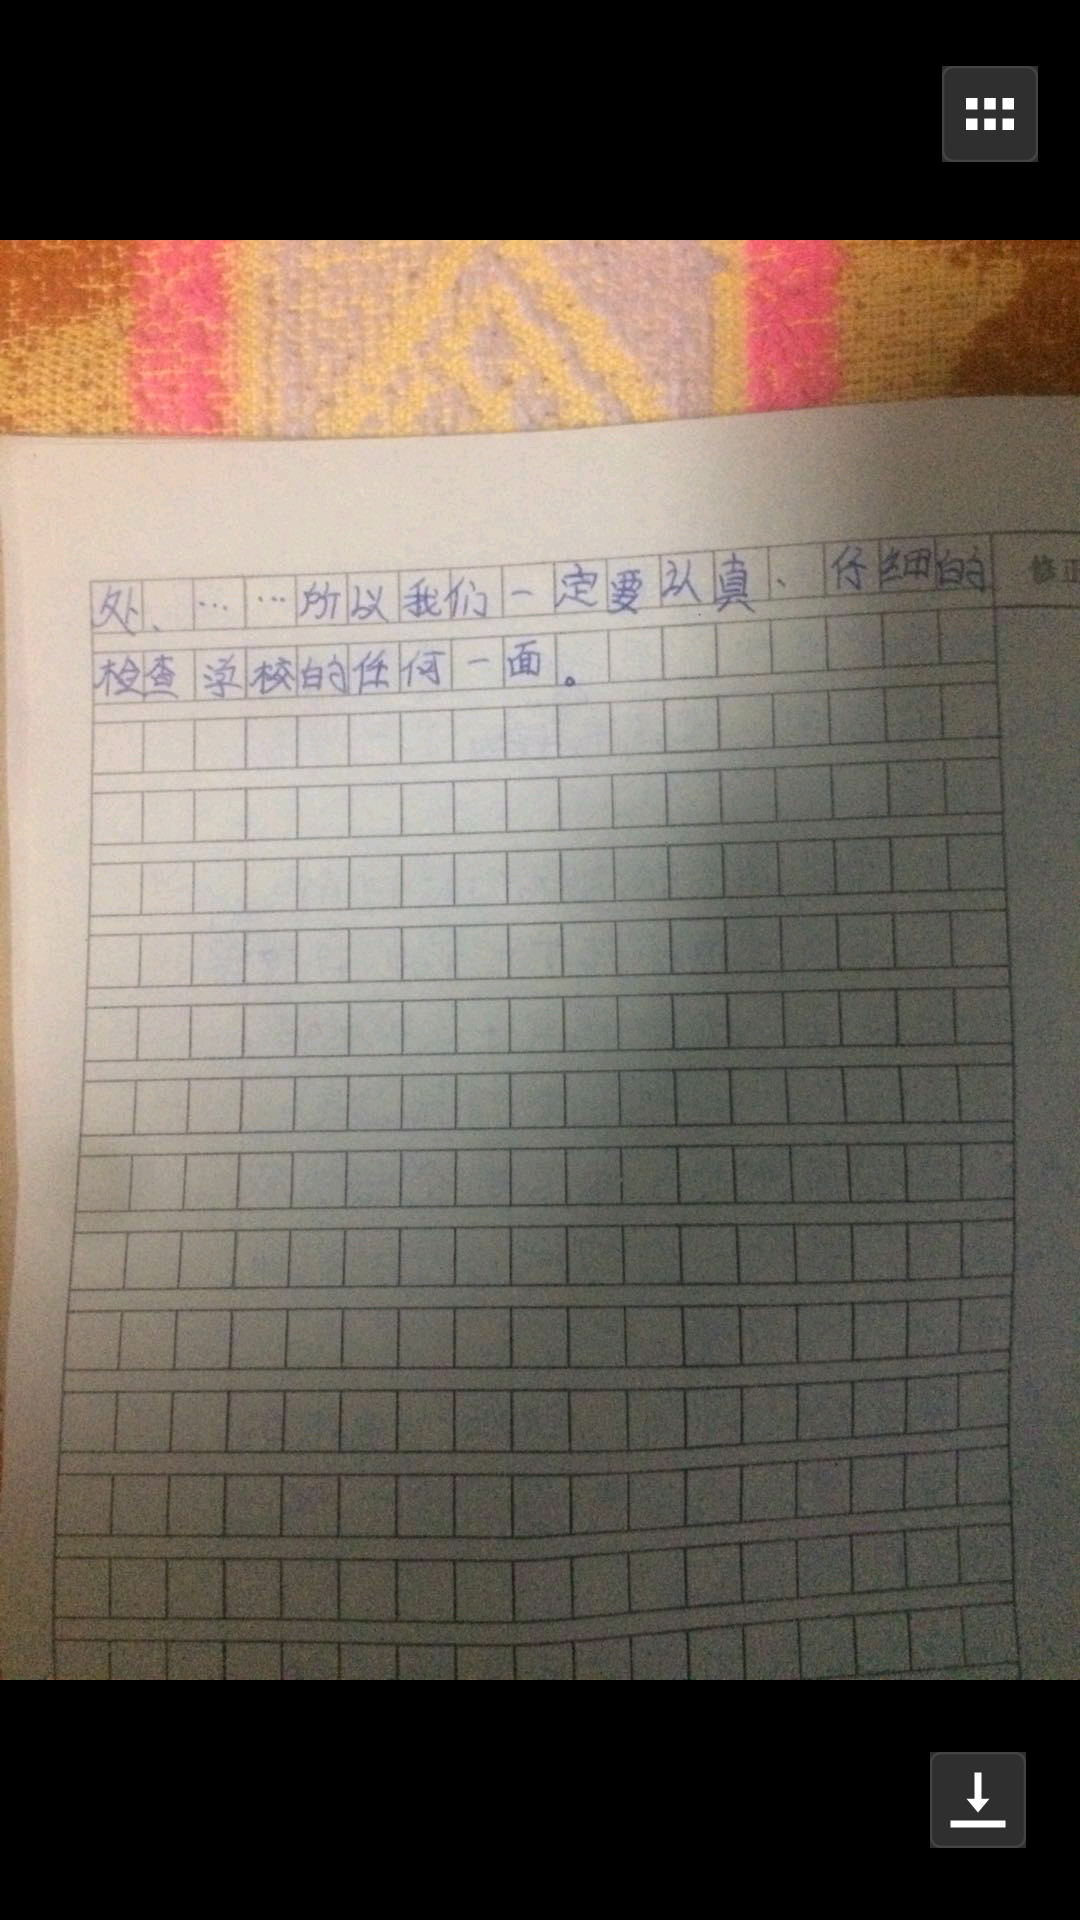 处、……所以我们一定要认真、仔细的
检查学校的任何一面。
修正